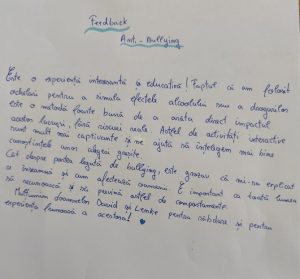 Feedback
Anti-Bullying
Este o experiență interesantă și educativă! Faptul că am folosit
ochelarii pentru a simula efectele alcoolului sau a drogurilor
este o metodă foarte bună de a arăta direct impactul
acestor lucruri, fără riscuri reale. Astfel de activități interactive
sunt mult mai captivante și ne ajută să înțelegem mai bine
consecințele unor alegeri greșite.
Cât despre partea legată de bullying, este groaznic că mi-au explicat
ce înseamnă și cum afectează oamenii. E important ca toată lumea
să cunoască și să prevină astfel de comportamente.
Mulțumim doamnelor David și Lemke pentru răbdare și pentru
experiența frumoasă a acestora!